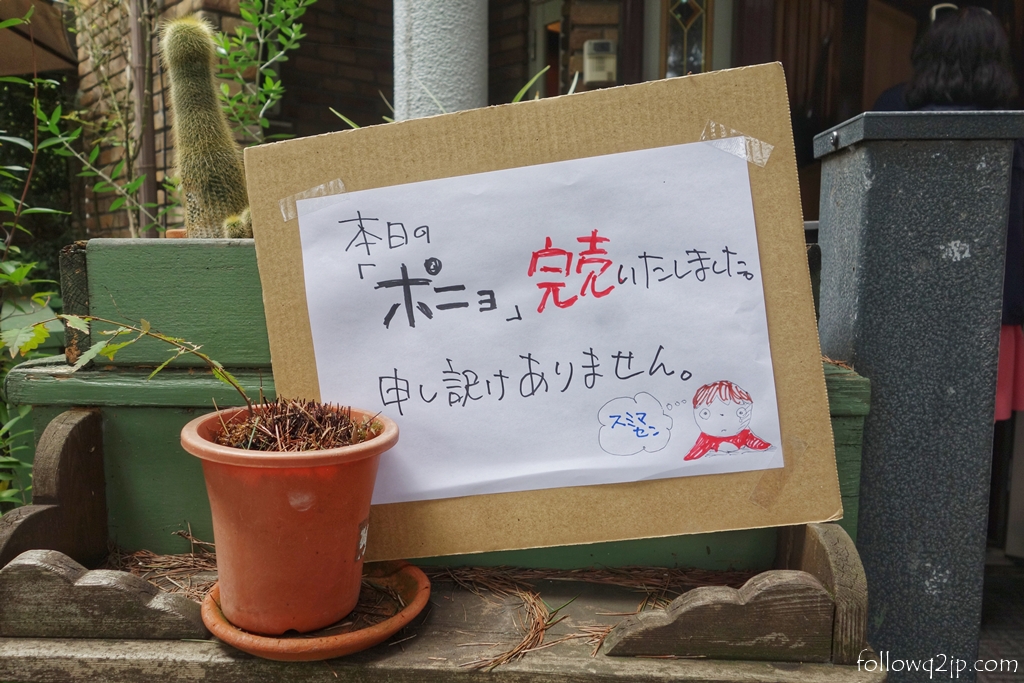 本日の
「ポニョ」完売いたしました。
申し説けありません。
スミマ
セン
followq2jp.com